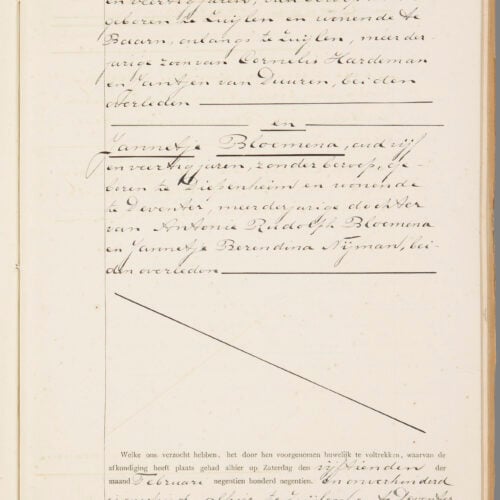 en veertig jaren, van beroep
geboren te Zuijlen en wonende te
Baarn, onlangs te Zuijlen, meerder-
jarige zoon van Cornelis Hardeman
en Jantjen van Duuren, beiden
overleden
en
Jannetje Bloemena, oud vijf
en veertig jaren, zonder beroep, ge-
boren te Diepenheim en wonende
te Deventer, meerderjarige dochter
van Antonie Rudolph Bloemena
en Jannetje Berendina Nijman, bei-
den overleden
Welke ons verzocht hebben, het door hen voorgenomen huwelijk te voltrekken, waarvan de
afkondiging heeft plaats gehad alhier op Zaterdag den vijftienden der
maand Februari negentien honderd negentien. En onverhinderd
alhier te Deventer